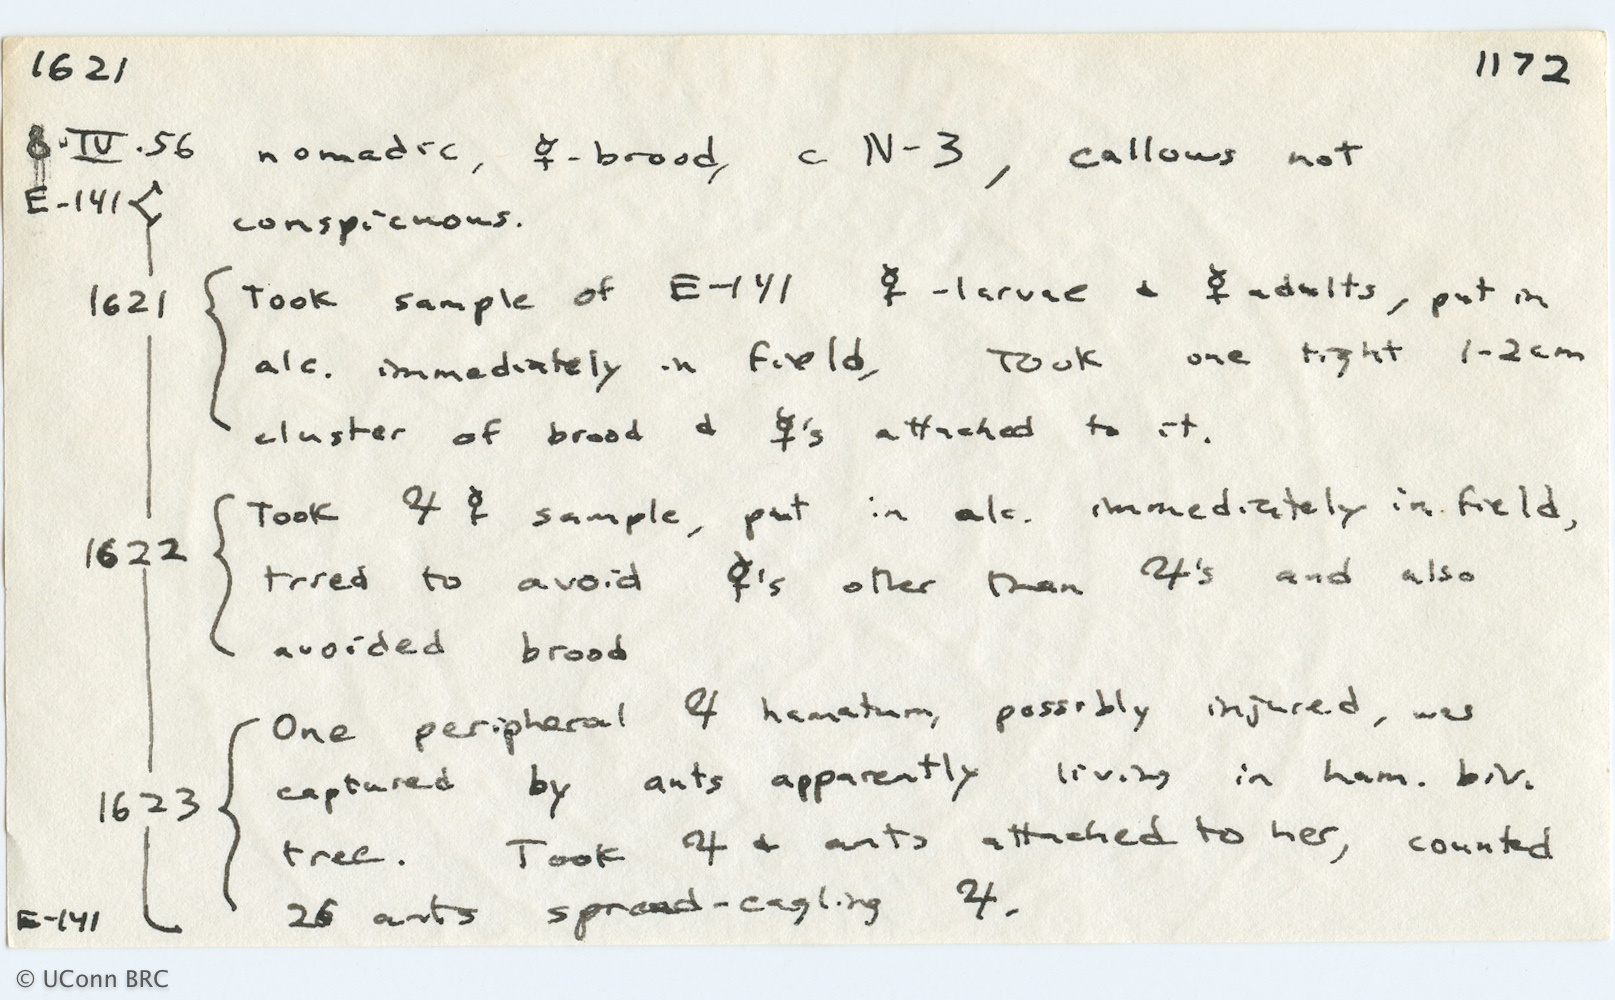 1621 1172
8.IV.56 nomadic, ☿-brood, c N-3, callows not
E-141 conspicuous.
1621 Took sample of E-141 ☿-larvae & ☿ adults, put in
alc. immediately in field, Took one tight 1-2cm
cluster of brood & ☿'s attached to it.
Took ♃ ☿ sample, put in alc. immediately in field,
1622 tried to avoid ☿'s other than ♃'s and also
avoided brood
One peripheral ♃ hamatum, possibly injured, was
captured by ants apparently living in ham. biv.
1623 tree. Took ♃ & ants attached to her, counted
E-141 26 ants spread-eagling ♃.
© UConn BRC